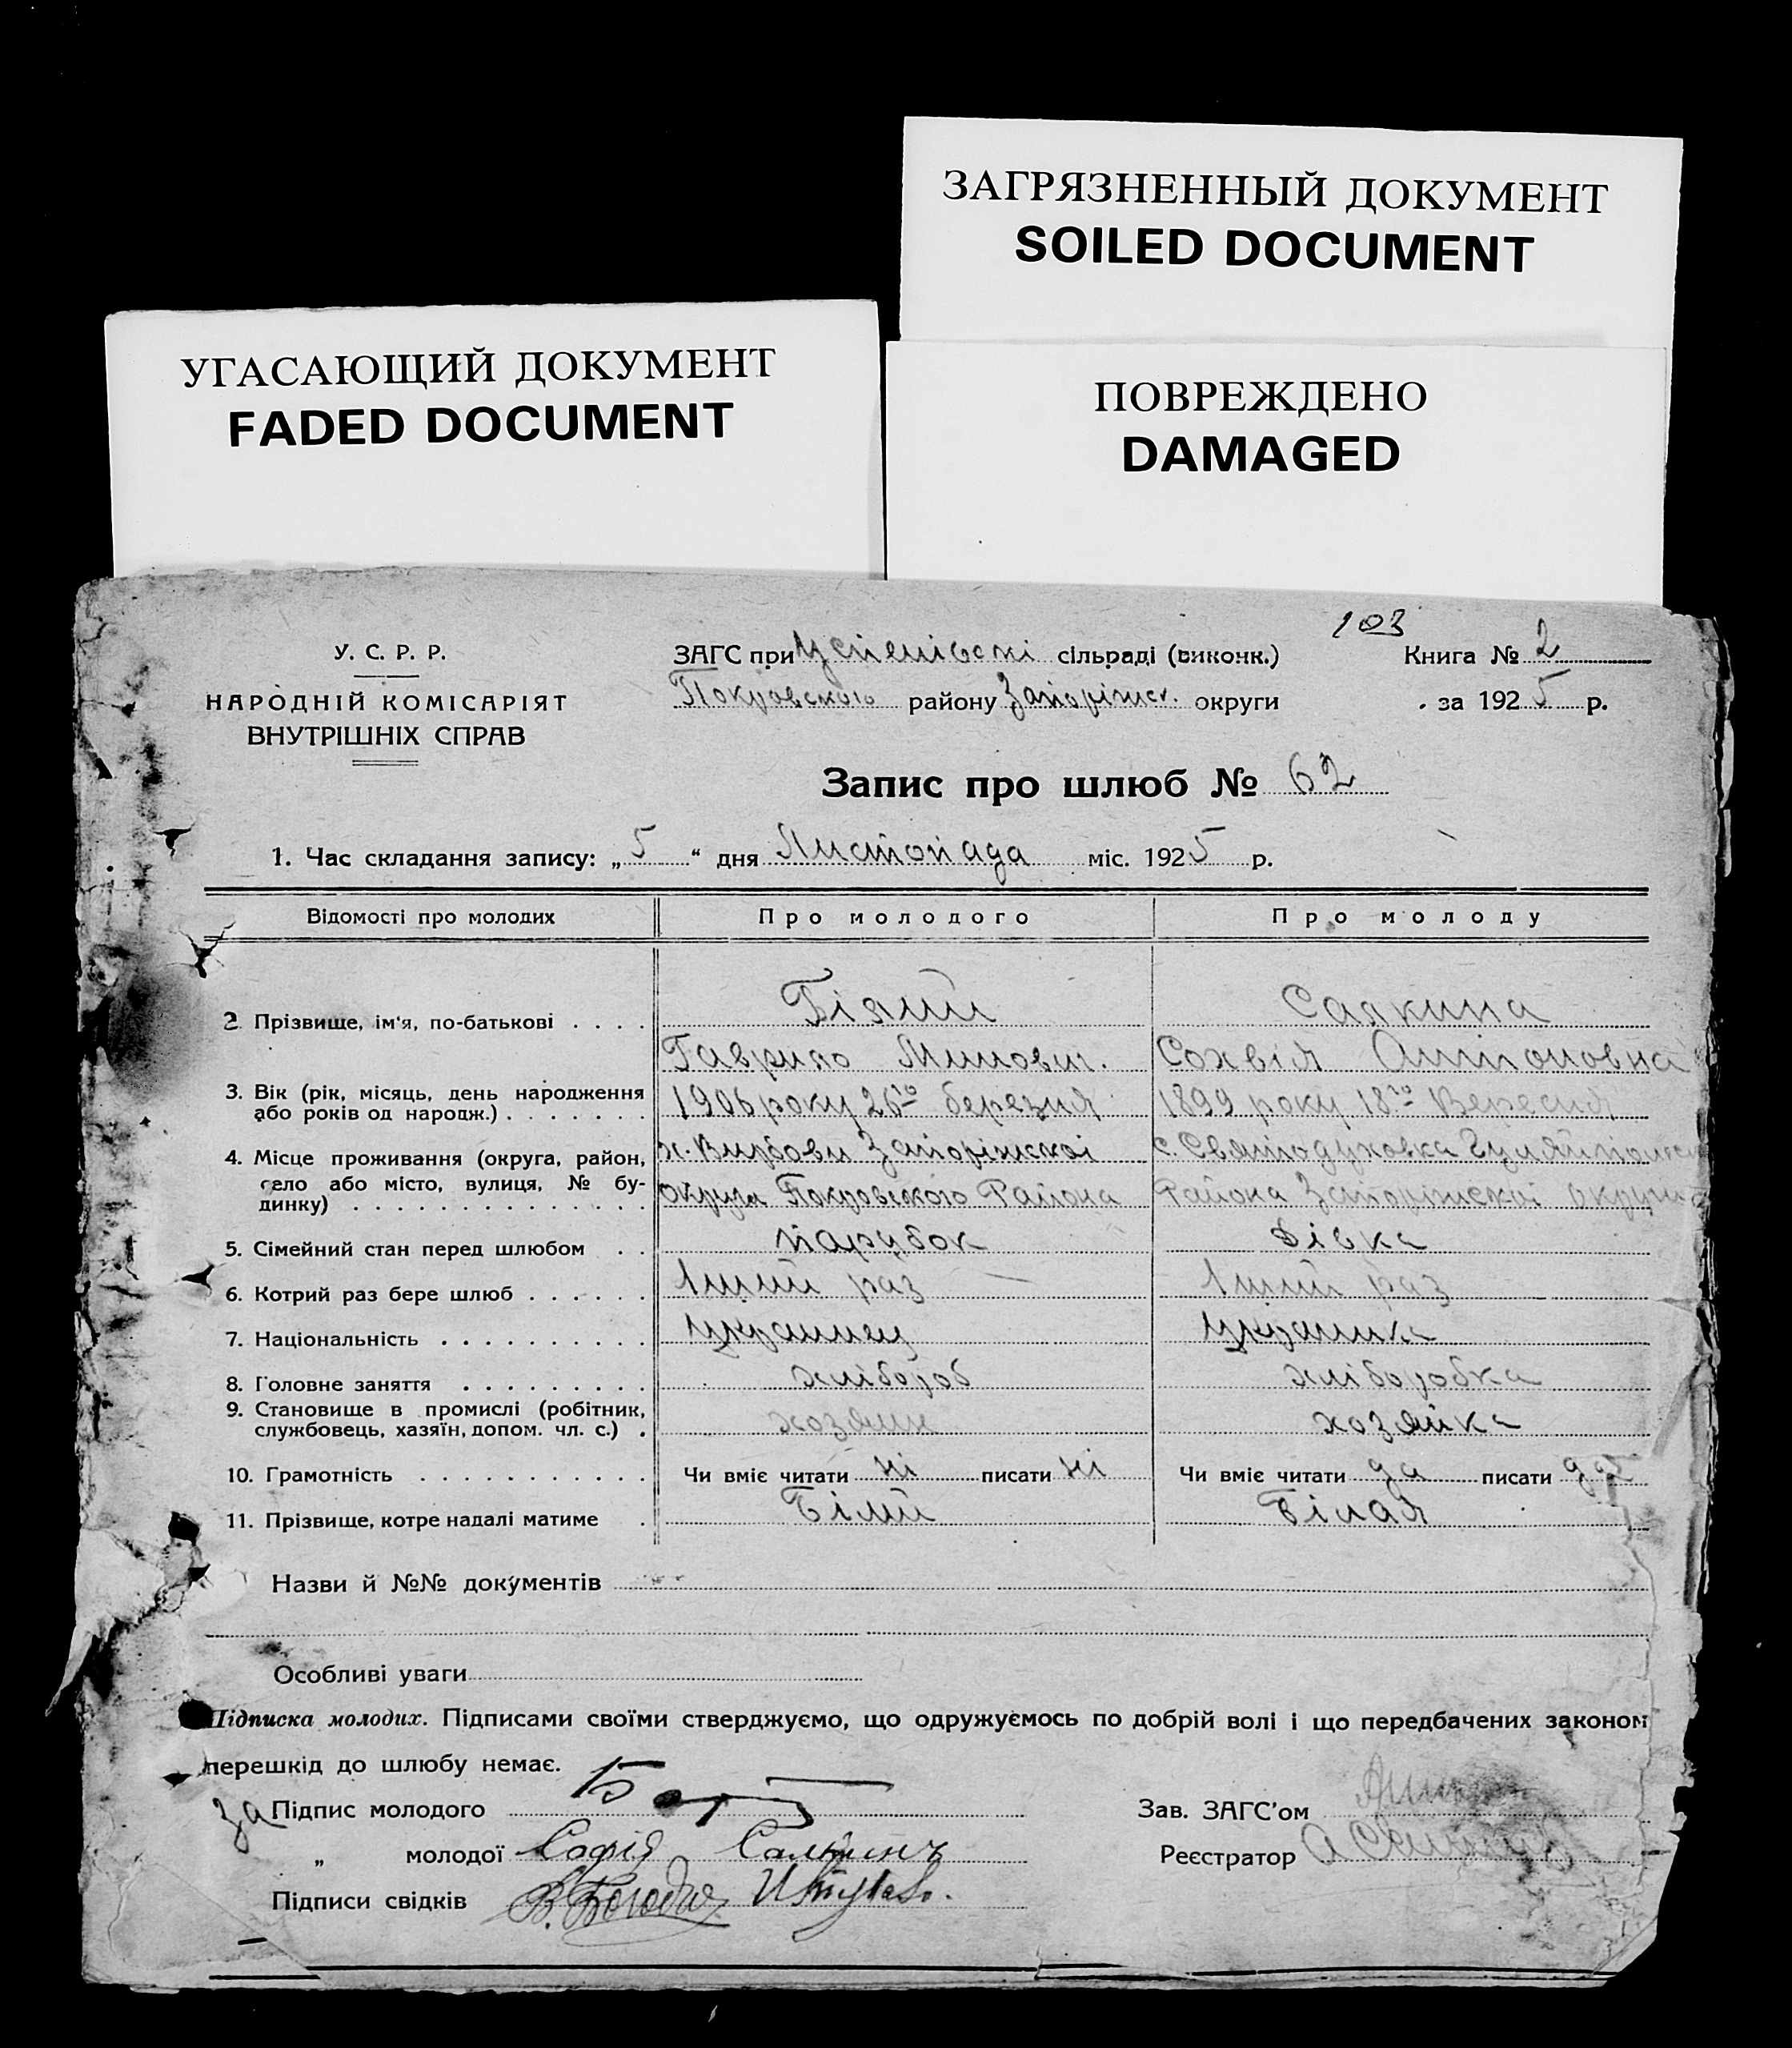 ЗАГРЯЗНЕННЫЙ ДОКУМЕНТ
SOILED DOCUMENT
УГАСАЮЩИЙ ДОКУМЕНТ
FADED DOCUMENT
ПОВРЕЖДЕНО
DAMAGED
103
У. С. Р. Р.
НАРОДНІЙ КОМІСАРІЯТ
ВНУТРІШНІХ СПРАВ
ЗАГС при Успенівскі сільраді (виконк.)
Покровського району Запоріжск. округи
Книга № 2
за 1925 р.
Запис про шлюб № 62
1. Час складання запису: „5“ дня Листопада міс. 1925 р.
Відомості про молодих Про молодого Про молоду
2 Прізвище, ім'я, по-батькові . . . . Білий Салкина
Гаврило Минович. Сохвія Антоновна
3. Вік (рік, місяць, день народження
або років од народж.) . . . . . . . 1906 року 26го березня 1899 року 18го Вересня
4. Місце проживання (округа, район, х. Вирбови Запоріжскоі с. Святодуховка Гуляйпольск
село або місто, вулиця, № бу-
динку) . . . . . . . . . . . . . . округи Покровського Района Района Запоріжскоі округи
5. Сімейний стан перед шлюбом . . парубок дівка
6. Котрий раз бере шлюб . . . . . . 1ший раз 1ший раз
7. Національність . . . . . . . . . . Украинец Украинка
8. Головне заняття . . . . . . . . . хлібороб хліборобка
9. Становище в промислі (робітник,
службовець, хазяїн, допом. чл. с.) . хозяин хозяйка
10. Грамотність . . . . . . . . . . . Чи вміє читати ні писати ні Чи вміє читати да писати да
11. Прізвище, котре надалі матиме . Білий Білая
Назви й №№ документів
Особливі уваги
Підписка молодих. Підписами своїми стверджуємо, що одружуємось по добрій волі і що передбачених законом
перешкід до шлюбу немає.
за Підпис молодого
Зав. ЗАГС'ом
„ молодої Софія Салкинъ
Реєстратор
Підписи свідків